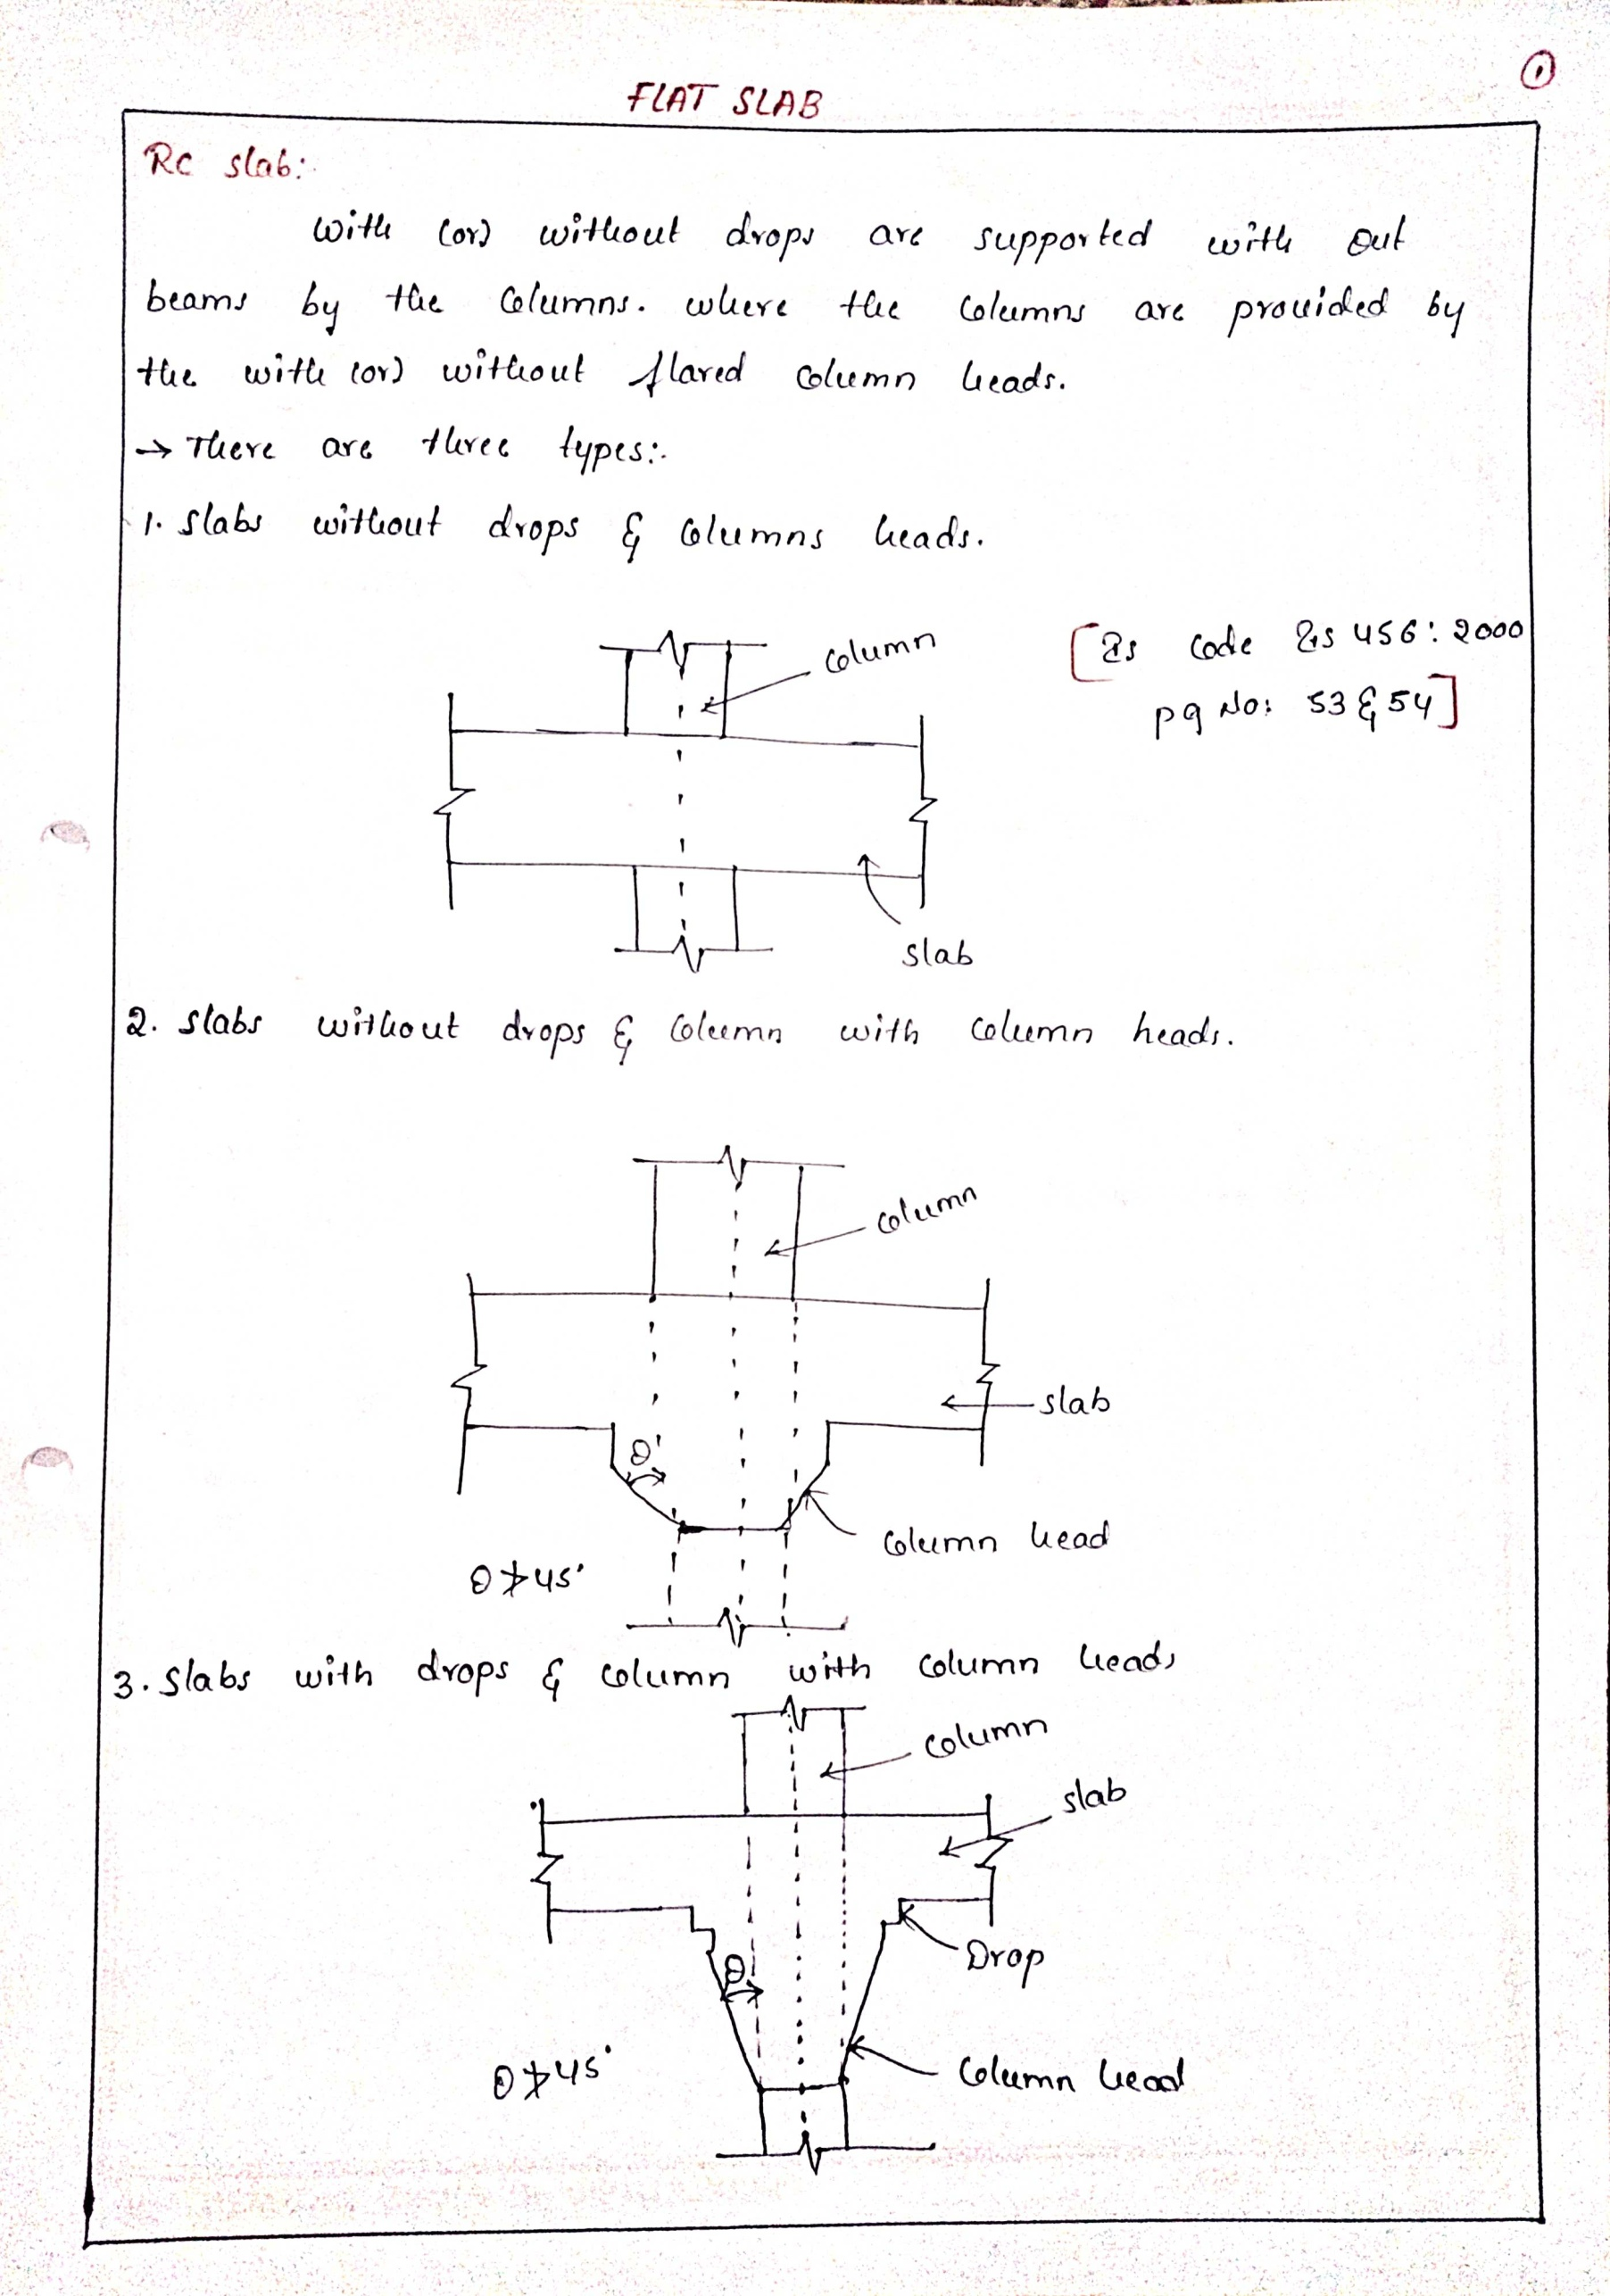 ①
FLAT SLAB
RC slab:
with (or) without drops are supported with out
beams by the columns. where the columns are provided by
the with (or) without flared column heads.
→ There are three types:
1. slabs without drops & columns heads.
column
[Is code Is 456: 2000
pg No: 53 & 54]
slab
2. slabs without drops & column with column heads.
column
slab
θ'
column head
θ ≯ 45°
3. slabs with drops & column with column heads
column
slab
Drop
θ
column head
θ ≯ 45°